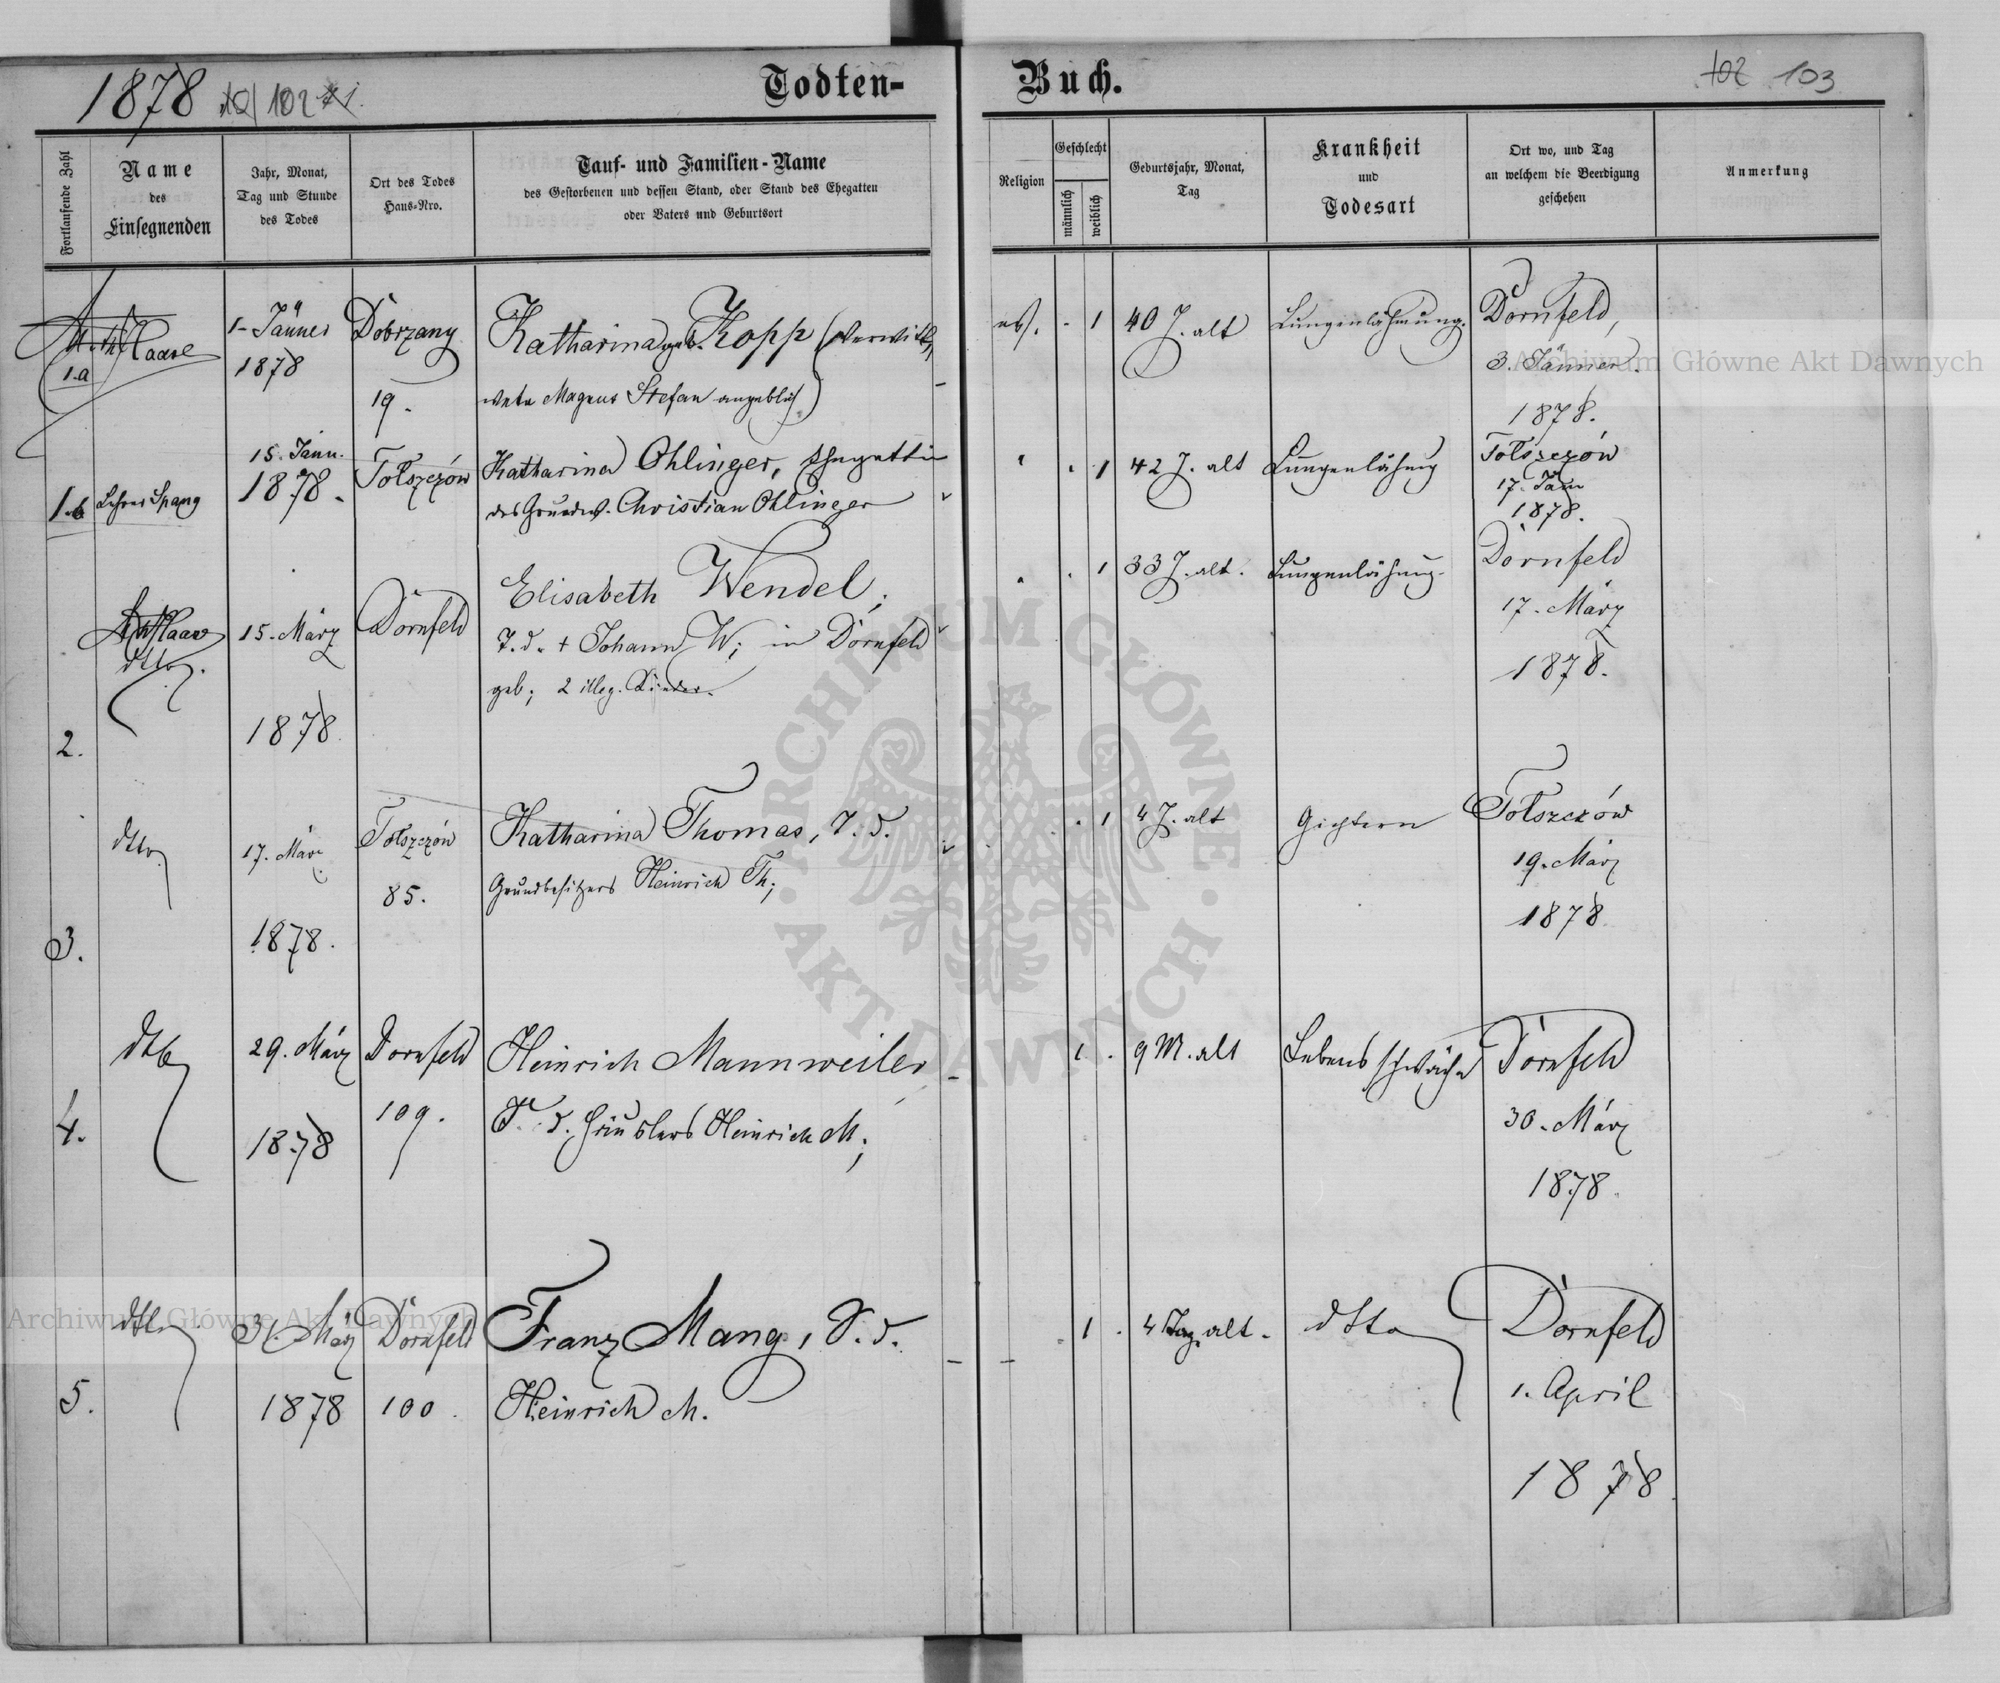 1878 102
Todten-Buch.
102 103
Fortlaufende Zahl
Name
des
Einsegnenden
Jahr, Monat,
Tag und Stunde
des Todes
Ort des Todes
Haus-Nro.
Tauf- und Familien-Name
des Gestorbenen und dessen Stand, oder Stand des Ehegatten
oder Vaters und Geburtsort
Religion
Geschlecht
männlich
weiblich
Geburtsjahr, Monat,
Tag
Krankheit
und
Todesart
Ort wo, und Tag
an welchem die Beerdigung
geschehen
Anmerkung
1.a
Haase
1. Jänner
1878
Dobrzany
19.
Katharina geb. Kopp (verwitt-
wete Magnus Stefan angeblich)
1
40 J. alt
Lungenlähmung.
Dornfeld,
3. Jänner.
1878.
1.b
Lehrer Spang
15. Jänn.
1878.
Tołszczów
Katharina Ohlinger, Ehegattin
des Grundw. Christian Ohlinger
1
42 J. alt
Lungenlähmung
Tołszczów
17. Jän
1878.
2.
Haase
dtto.
15. März
1878
Dornfeld
Elisabeth Wendel,
T. d. + Johann W; in Dornfeld
geb; 2 illeg. Kinder.
1
33 J. alt.
Lungenlähmung.
Dornfeld
17. März
1878.
3.
dtto.
17. März
1878.
Tołszczów
85.
Katharina Thomas, T. d.
Grundbesitzers Heinrich Th;
1
4 J. alt
Gichtern
Tołszczów
19. März
1878
4.
dtto
29. März
1878
Dornfeld
109.
Heinrich Mannweiler
S. d. Häuslers Heinrich M;
1
9 M. alt
Lebensschwäche
Dornfeld
30. März
1878.
5.
dtto
31. März
1878
Dornfeld
100.
Franz Mang, S. d.
Heinrich M.
1
4 Tag alt.
dtto
Dornfeld
1. April
1878
Archiwum Główne Akt Dawnych
Archiwum Główne Akt Dawnych
ARCHIWUM GŁÓWNE · AKT DAWNYCH ·